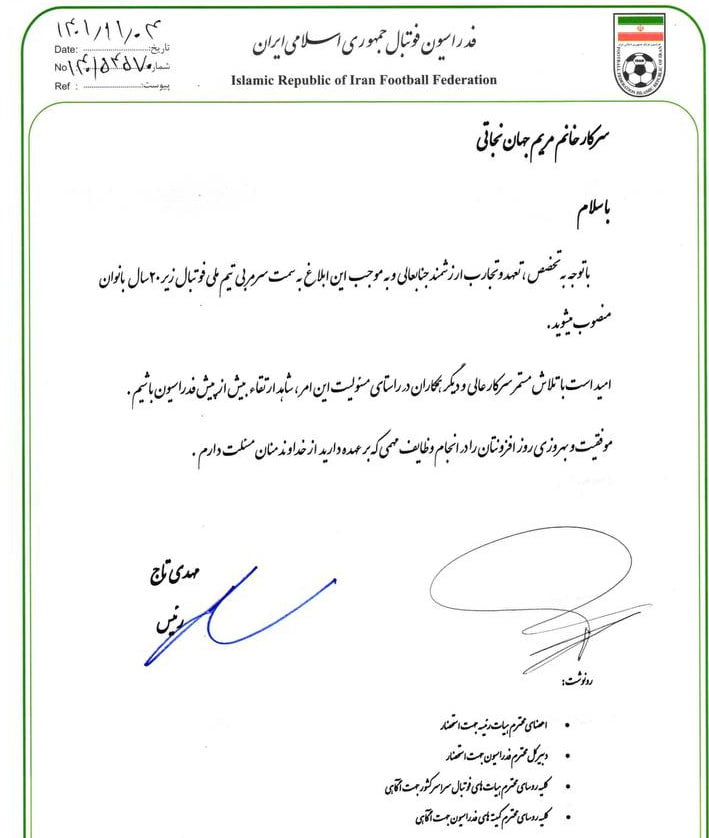 فدراسیون فوتبال جمهوری اسلامی ایران
Islamic Republic of Iran Football Federation
Date: تاریخ: ۱۴۰۱/۱۱/۰۴
No شماره:
Ref : پیوست:
سرکار خانم مریم جهان نجاتی
با سلام
با توجه به تخصص ، تعهد و تجارب ارزشمند جنابعالی و به موجب این ابلاغ به سمت سرمربی تیم ملی فوتبال زیر ۲۰ سال بانوان
منصوب میشوید .
امید است با تلاش مستمر سرکار عالی و دیگر همکاران در راستای مسئولیت این امر ، شاهد ارتقاء بیش از پیش فدراسیون باشیم .
موفقیت و بهروزی روز افزونتان را در انجام وظایف مهمی که بر عهده دارید از خداوند منان مسئلت دارم .
مهدی تاج
رئیس
رونوشت:
• اعضای محترم هیات رئیسه جهت استحضار
• دبیر کل محترم فدراسیون جهت استحضار
• کلیه روسای محترم هیات های فوتبال سراسر کشور جهت آگاهی
• کلیه روسای محترم کمیته های فدراسیون جهت آگاهی